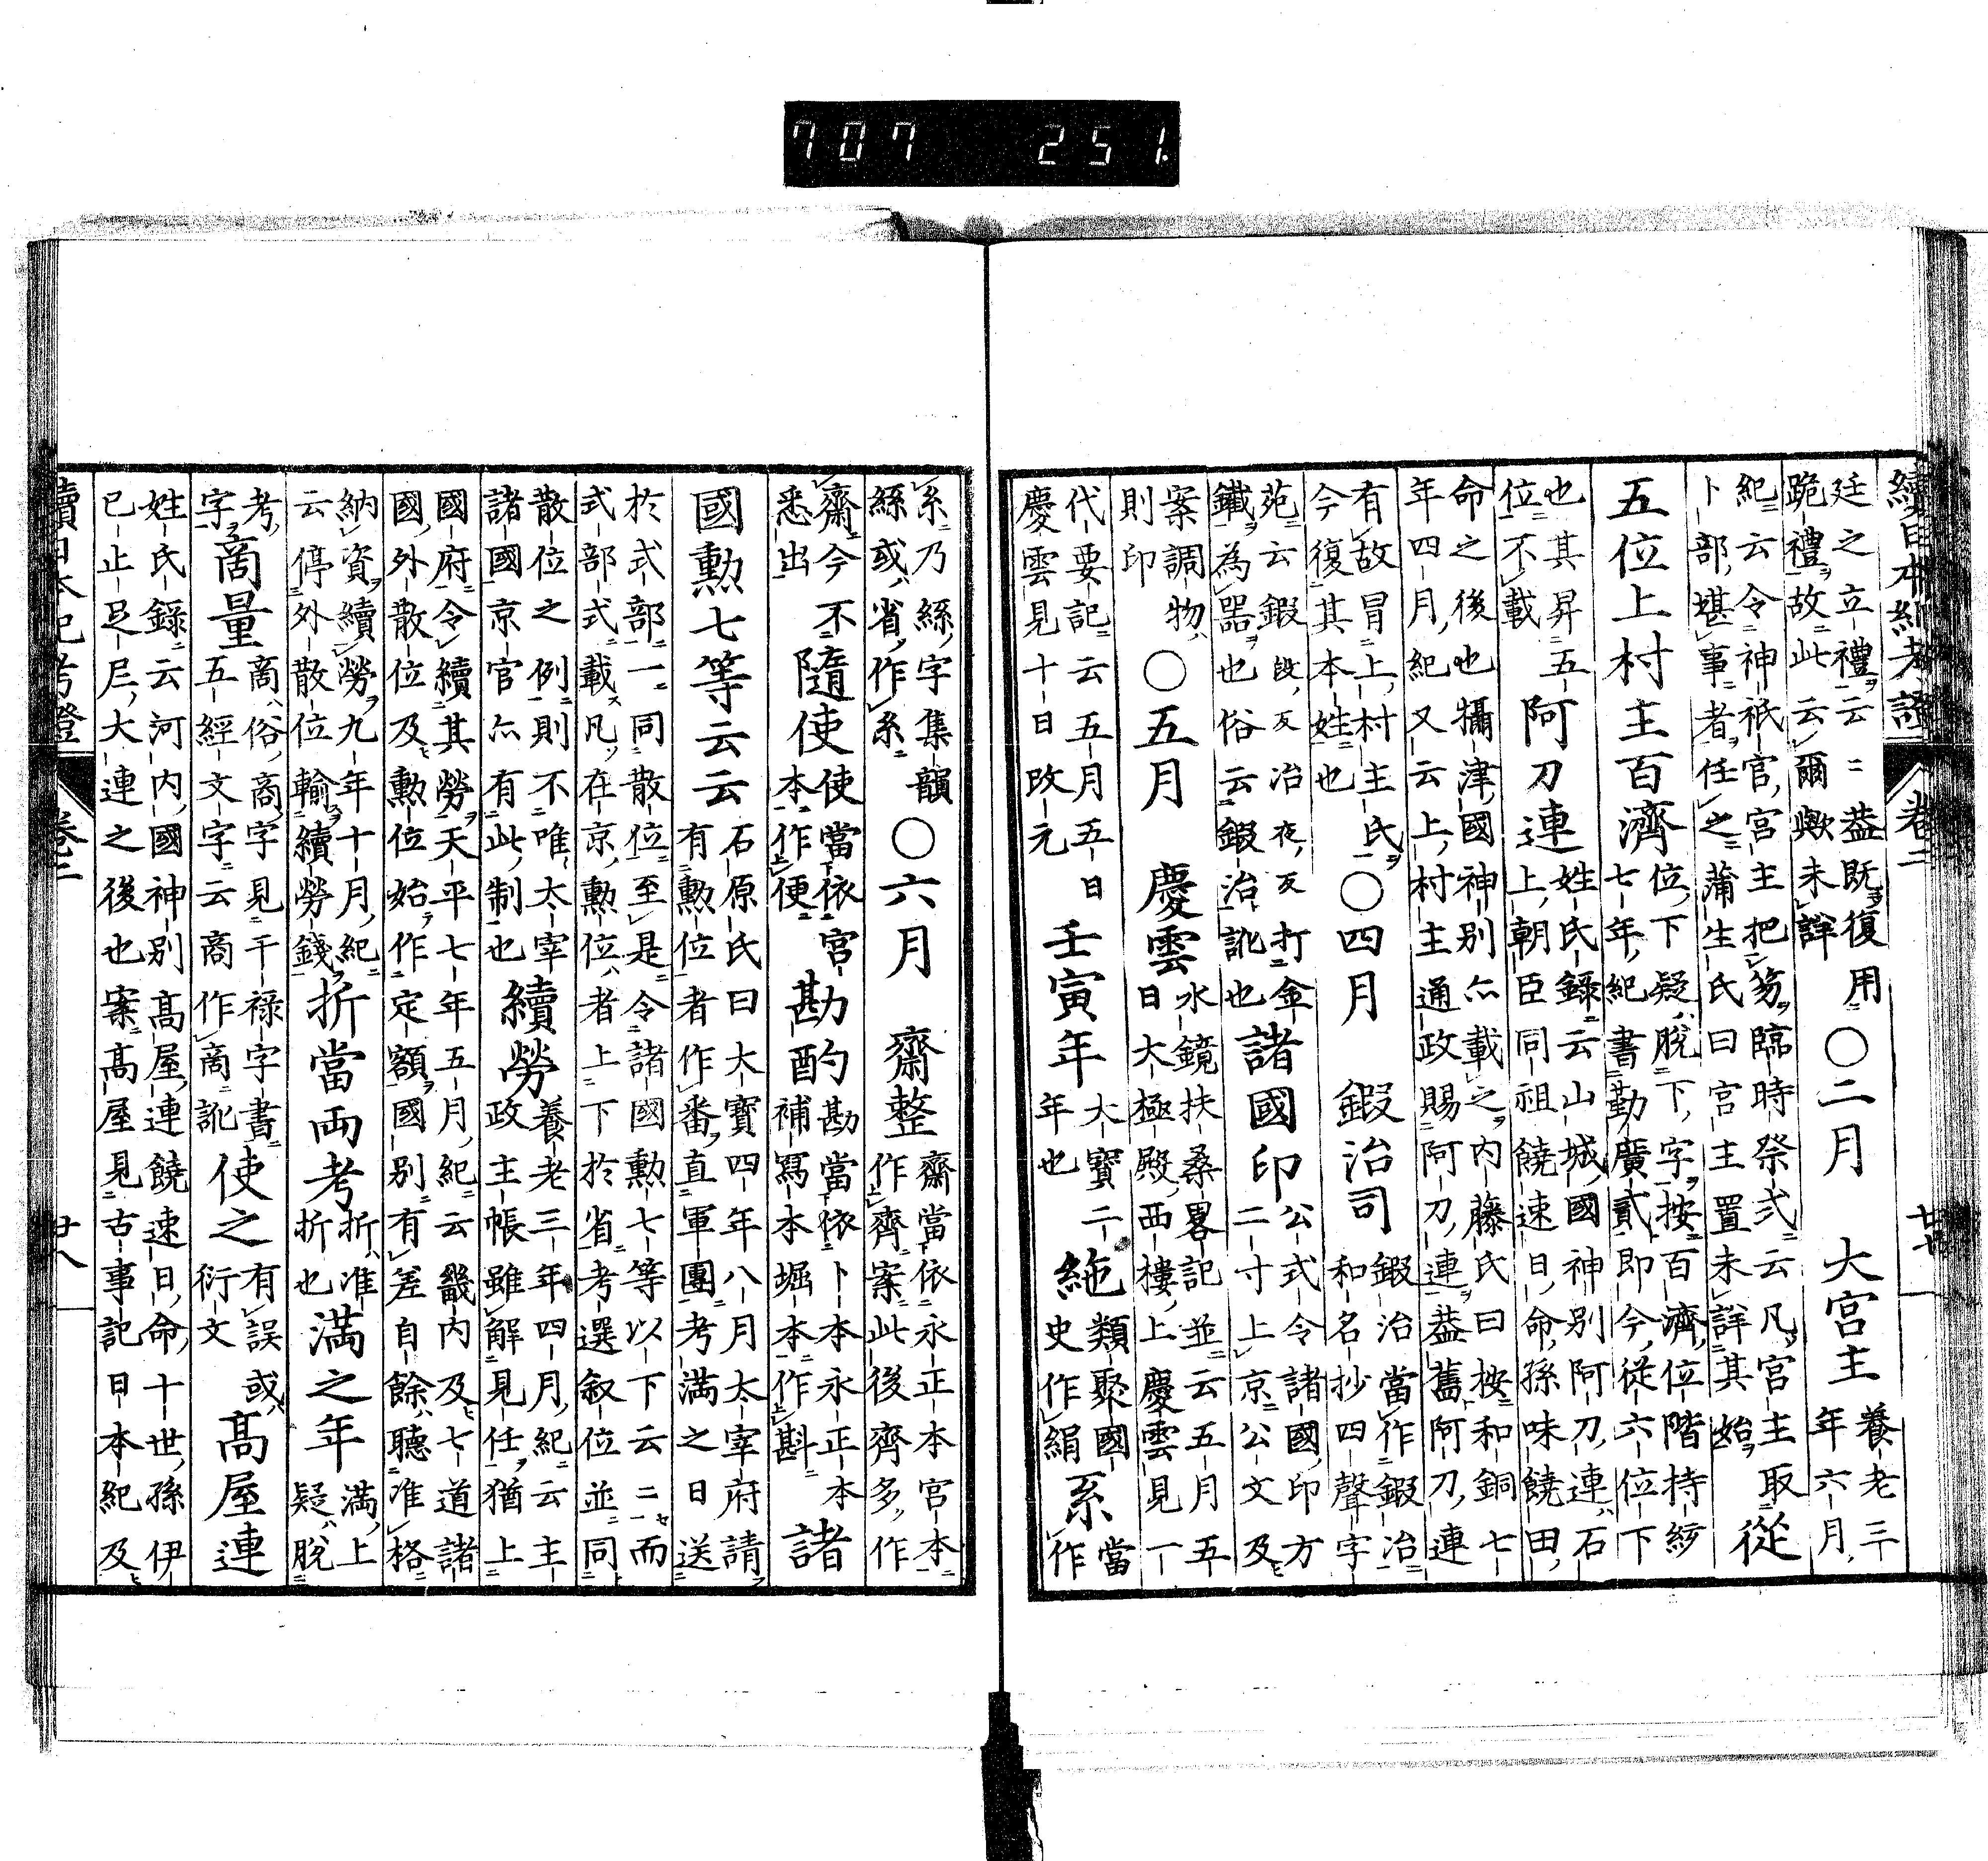 707 251.
續日本紀考證 卷二 廿七
廷之立禮云云盖既復用
跪禮故此云爾歟未詳
〇二月 大宮主 養老三年六月
紀云令神祇官宮主把笏臨時祭式云凡宮主取
卜部堪事者任之蒲生氏曰宮主置未詳其始 從
五位上村主百濟 位下疑脫下字按百濟位階持統
七年紀書勤廣貳即今從六位下
也其昇五
位不載
阿刀連 姓氏錄云山城國神別阿刀連石
上朝臣同祖饒速日命孫味饒田
命之後也攝津國神別亦載之內藤氏曰按和銅七
年四月紀又云上村主通政賜阿刀連盖舊阿刀連
有故冒上村主氏
今復其本姓也
〇四月 鍜治司 鍜治當作鍜冶
和名抄四聲字
苑云鍜段反冶夜反打金
鐵為器也俗云鍜冶訛也
諸國印 公式令諸國印方
二寸上京公文及
案調物
則印
〇五月 慶雲 水鏡扶桑畧記並云五月五
日大極殿西樓上慶雲見一
代要記云五月五日
慶雲見十日改元
壬寅年 大寶二
年也
絁 類聚國
史作絹
系 當
作
糸乃絲字集韻
絲或省作糸
〇六月 齋整 齋當依永正本宮本
作齊案此後齊多作
齋今不
悉出
隨使 使當依宮
本作便
勘酌 勘當依卜本永正本
補寫本堀本作斟
諸
國勲七等云云 石原氏曰大寶四年八月太宰府請
有勲位者作番直軍團考滿之日送
於式部一同散位至是令諸國勲七等以下云云而
式部式載凡在京勲位者上下於省考選叙位並同
散位之例則不唯太宰
諸國京官亦有此制也
續勞 養老三年四月紀云主
政主帳雖解見任猶上
國府令續其勞天平七年五月紀云畿內及七道諸
國外散位及勲位始作定額國別有差自餘聽准格
納資續勞九年十月紀
云停外散位輸續勞錢
折當両考 折准
折也
満之年 満上
疑脫
考
字
商量 商俗商字見干祿字書
五經文字云商作商訛
使之 有誤
衍文
或
高屋連
姓氏錄云河內國神別高屋連饒速日命十世孫伊
己止足尼大連之後也案高屋見古事記日本紀及
續日本紀考證 卷二 廿八